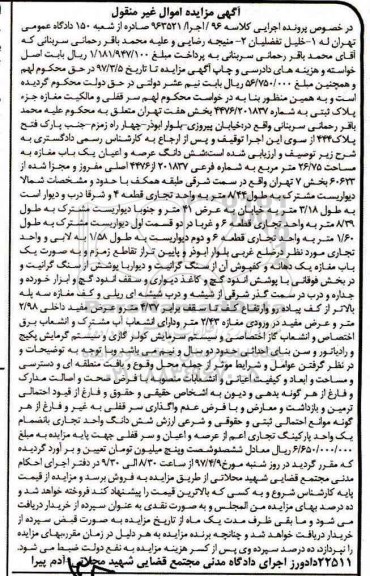 آگهی مزایده اموال غیر منقول
در خصوص پرونده اجرایی کلاسه ۹۶ /اجرا/ ۹۶۳۵۲۱ صادره از شعبه ۱۵۰ دادگاه عمومی
تهران له ۱-خلیل تفضلیان ۲- منیجه رضایی و علیه محمد باقر رحمانی سربنانی که
آقای محمد باقر رحمانی سربنانی به پرداخت مبلغ ۱/۱۸۱/۹۴۷/۱۰۰ ریال بابت اصل
خواسته و هزینه های دادرسی و چاپ آگهی مزایده تا تاریخ ۹۷/۳/۵ در حق محکوم لهم
و همچنین مبلغ ۵۶/۷۵۰/۰۰۰ ریال بابت نیم عشر دولتی در حق دولت محکوم گردیده
است و به همین منظور بنا به درخواست محکوم لهم سر قفلی و مالکیت مغازه جزء
پلاک ثبتی به شماره ۴۴۷۶/۲۰۱۸۳۷ بخش هفت تهران متعلق به محکوم علیه محمد
باقر رحمانی سربنانی واقع در:خیابان پیروزی-بلوار ابوذر-چهار راه زمزم-جنب پارک فتح
پلاک ۴۴۴ از سوی این اجرا توقیف و پس از ارجاع به کارشناس رسمی دادگستری به
شرح زیر توصیف و ارزیابی شده است:شش دانگ عرصه و اعیان یک باب مغازه به
مساحت ۲۶/۷۵ متر مربع به شماره فرعی ۲۰۱۸۳۷ از ۴۴۷۶ اصلی مفروز و مجزا شده از
۶۰۶۲۳ بخش ۷ تهران واقع در سمت شرقی طبقه همکف با حدود و مشخصات شمالا
دیواریست مشترک به طول ۸/۴۴ متر به واحد تجاری قطعه ۴ و شرقا درب و دیوار است
به طول ۳/۱۸ متر به خیابان به عرض ۲۱ متر و جنوبا دیواریست مشترک به طول
۸/۳۹ متر به واحد تجاری قطعه ۶ و غربا در دو قسمت اول دیواریست مشترک به طول
۱/۶۰ متر به واحد تجاری قطعه ۶ و دوم دیواریست به طول ۱/۵۸ به لابی و واحد
تجاری مورد نظر در ضلع غربی بلوار ابوذر و پایین تر از تقاطع زمزم و به صورت یک
باب مغازه یک دهانه و کفپوش آن از سنگ گرانیت و دیوارها پوشش از سنگ گرانیت و
در بخش فوقانی با پوشش اندود گچ و کاغذ دیواری و سقف اندود گچ و ابزار خورده و
جداره و درب در سمت گذر شرقی از شیشه و درب شیشه ای ریلی و کف مغازه سه پله
بالاتر از کف پیاده رو وارتفاع کف تا سقف برابر ۴/۳۷ مترو عرض مفید داخلی ۲/۹۸
متر و عرض مفید در ورودی مغازه ۲/۴۳ متر ودارای انشعاب آب مشترک و انشعاب برق
اختصاصی و انشعاب گاز اختصاصی و سیستم سرمایش کولر گازی و سیستم گرمایش پکیج
و رادیاتور و سن بنای احداثی حدود دو سال و نیم می باشد وبا توجه به توضیحات و
در نظر گرفتن عوامل و شرایط موثر از جمله محل وقوع و بافت منطقه ای و دسترسی
و مساحت و ابعاد و کیفیت اعیانی و انشعابات منصوبه با فرض صحت و اصالت مدارک
و فارغ از هر گونه بدهی و دیون به اشخاص حقیقی و حقوق و فارغ از قیود احتمالی
ترمین و بازداشت و معارض و با فرض عدم واگذاری سر قفلی به غیر و فارغ از هر
گونه موانع احتمالی ثبتی و حقوقی و شرعی ارزش شش دانگ واحد تجاری بانضمام
یک واحد پارکینگ تجاری اعم از عرصه و اعیان و سر قفلی جهت پایه مزایده به مبلغ
۶/۶۵۰/۰۰۰/۰۰۰ ریال معادل ششصدوشصت وپنج میلیون تومان تعیین و بر آورد گردیده
که مقرر گردید در روز شنبه مورخ ۹۷/۴/۹ از ساعت ۸/۳۰ الی ۹/۳۰ در دفتر اجرای احکام
مدنی مجتمع قضایی شهید محلاتی از طریق مزایده به فروش برسد و مزایده از قیمت
پایه کارشناس شروع و به کسی که بالاترین قیمت را پیشنهاد کند فروخته خواهد شد و
ده درصد بهای مزایده من المجلس و به صورت نقدی به عنوان سپرده از خریدار دریافت
می شود و ما بقی ظرف مدت یک ماه از تاریخ مزایده به صورت قبض سپرده از
خریدار دریافت خواهد شد و چنانچه برنده مزایده به هر دلیل در زمان مقرربهای مزایده
را نپردازد، ده درصد سپرده وی پس از کسر هزینه مزایده به نفع دولت ضبط می شود.
۲۲۵۱۱ دادورز اجرای دادگاه مدنی مجتمع قضایی شهید محلاتی - آدم پیرا